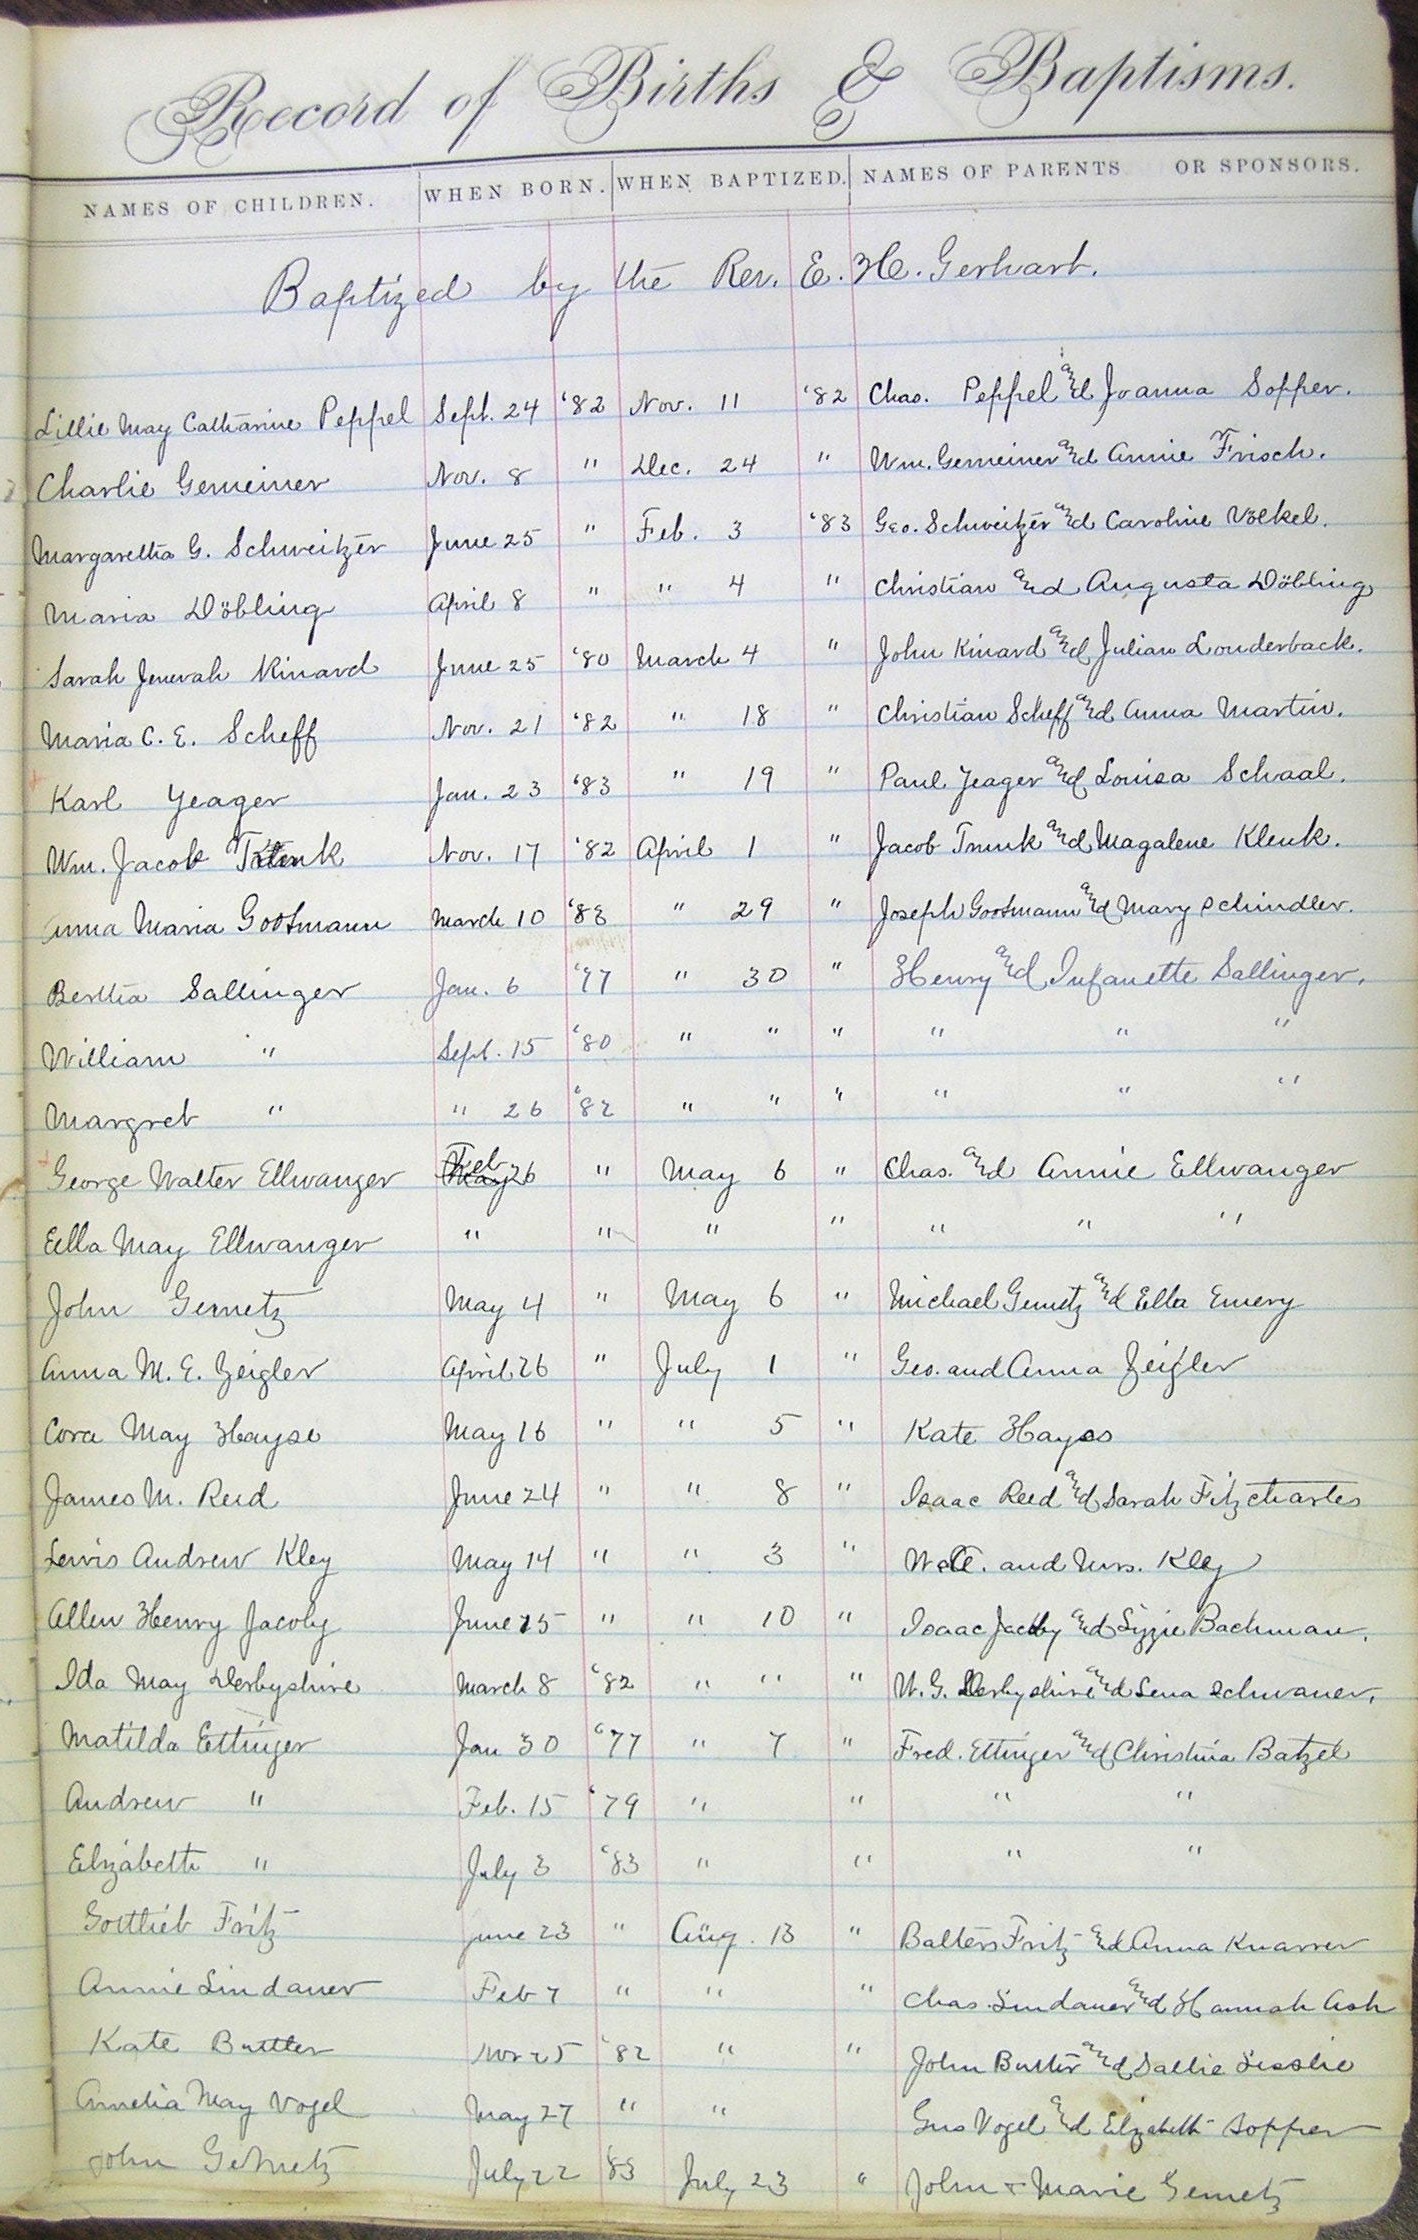 Record of Births & Baptisms.
NAMES OF CHILDREN. WHEN BORN. WHEN BAPTIZED. NAMES OF PARENTS OR SPONSORS.
Baptized by the Rev. E. H. Gerhart.
Lillie May Catharine Peppel Sept. 24 '82 Nov. 11 '82 Chas. Peppel and Joanna Sopper.
Charlie Gemeiner Nov. 8 " Dec. 24 " Wm. Gemeiner and Annie Frisch.
Margaretha G. Schweitzer June 25 " Feb. 3 '83 Geo. Schweitzer and Caroline Völkel.
Maria Döbling April 8 " " 4 " Christian and Augusta Döbling
Sarah Jenevah Kinard June 25 '80 March 4 " John Kinard and Julian Louderback.
Maria C. E. Scheff Nov. 21 '82 " 18 " Christian Scheff and Anna Martin.
Karl Yeager Jan. 23 '83 " 19 " Paul Yeager and Louisa Schaal.
Wm. Jacob Nov. 17 '82 April 1 " Jacob Trunk and Magalene Klenk.
Anna Maria Gootmann March 10 '83 " 29 " Joseph Gootmann and Mary Schindler.
Bertha Sallinger Jan. 6 '77 " 30 " Henry and Infanette Sallinger.
William " Sept. 15 '80 " " " " " "
Margret " " 26 '82 " " " " " "
George Walter Ellwanger Feb 26 " May 6 " Chas. and Annie Ellwanger
Eella May Ellwanger " " " " " " "
John Gemetz May 4 " May 6 " Michael Gemetz and Ella Emery
Anna M. E. Zeigler April 26 " July 1 " Geo. and Anna Zeigler
Cora May Hayse May 16 " " 5 " Kate Hayes
James M. Reed June 24 " " 8 " Isaac Reed and Sarah Fitzcharles
Lewis Andrew Kley May 14 " " 3 " and Mrs. Kley
Allen Henry Jacoby June 15 " " 10 " Isaac Jacoby and Lizzie Bachman.
Ida May Derbyshire March 8 '82 " " " W. G. Derbyshire and Lena Schwaner.
Matilda Ettinger Jan 30 '77 " 7 " Fred. Ettinger and Christina Batzel
Andrew " Feb. 15 '79 " " " "
Elizabeth " July 3 '83 " " " "
Gottlieb Fritz June 23 " Aug. 13 " Balters Fritz and Anna Knarrer
Annie Lindauer Feb 7 " " " Chas. Lindauer and Hannah Ash
Kate Buttler Nov 25 '82 " " John Butler and Sallie
Amelia May Vogel May 27 " " Gus Vogel and Elizabeth Sopper
John Gemetz July 22 83 July 23 " John & Marie Gemetz